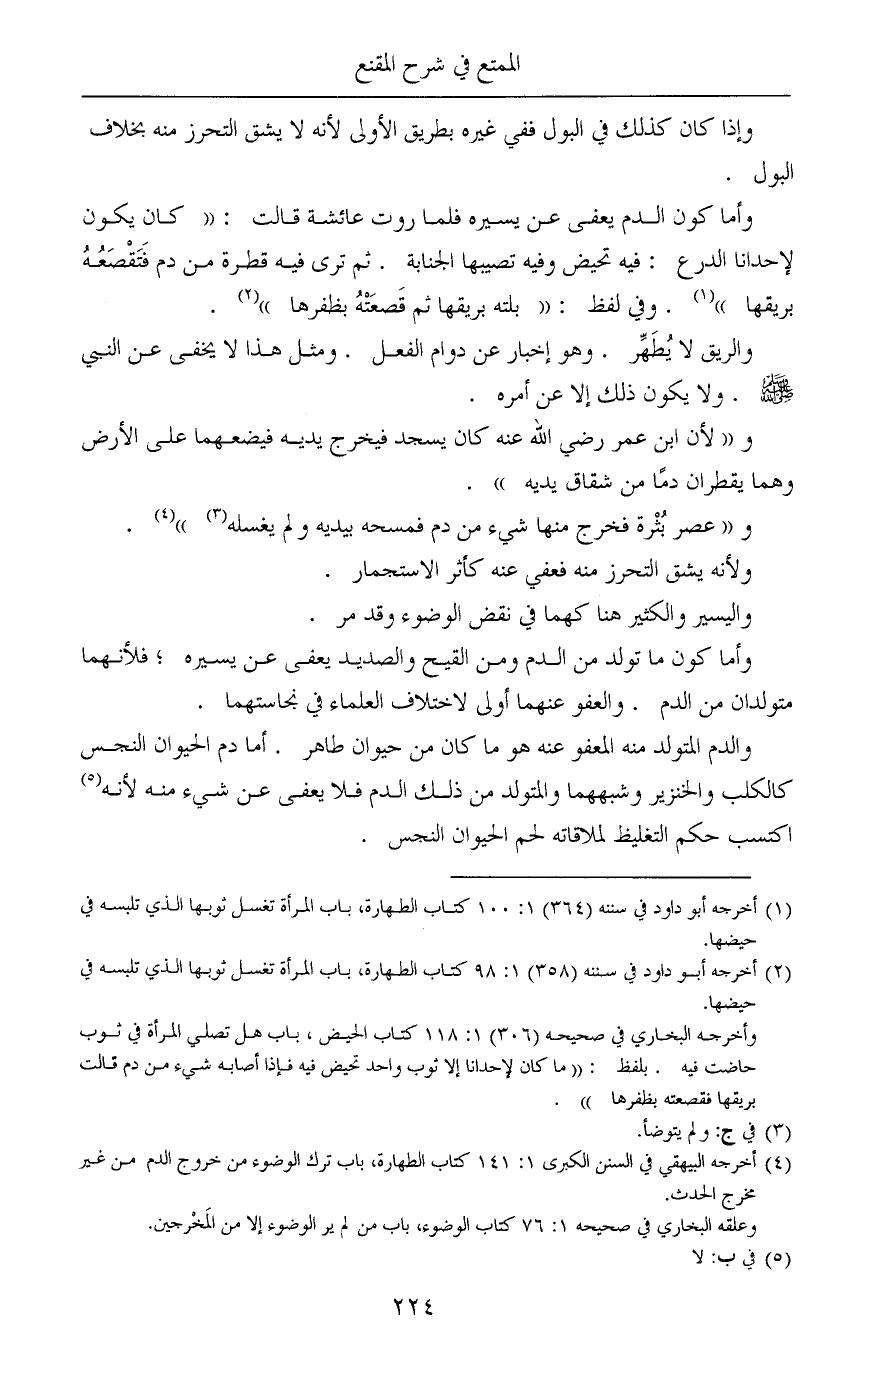 الممتع في شرح المقنع
وإذا كان كذلك في البول ففي غيره بطريق الأولى لأنه لا يشق التحرز منه بخلاف
البول .
وأما كون الـدم يعفى عـن يسـيره فلمـا روت عائشـة قـالت : (( كـان يكـون
لإحدانا الدرع : فيه تحيض وفيه تصيبها الجنابة . ثم ترى فيـه قطـرة مـن دم فَتَقْصَعُـهُ
بريقها ))(١) . وفي لفظ : (( بلته بريقها ثم قَصعَتْهُ بظفرها ))(٢) .
والريق لا يُطَهِّر . وهو إخبار عن دوام الفعـل . ومثـل هـذا لا يخفـى عـن النـبي
ﷺ . ولا يكون ذلك إلا عن أمره .
و (( لأن ابن عمر رضي الله عنه كان يسجد فيخرج يديـه فيضعـهما علـى الأرض
وهما يقطران دمًا من شقاق يديه )) .
و (( عصر بُثْرة فخرج منها شيء من دم فمسحه بيديه ولم يغسله(٣) ))(٤) .
ولأنه يشق التحرز منه فعفي عنه كأثر الاستجمار .
واليسير والكثير هنا كهما في نقض الوضوء وقد مر .
وأما كون ما تولد من الـدم ومـن القيـح والصديـد يعفـى عـن يسـيره ؛ فلأنـهما
متولدان من الدم . والعفو عنهما أولى لاختلاف العلماء في نجاستهما .
والدم المتولد منه المعفو عنه هو ما كان من حيوان طاهر . أما دم الحيوان النجـس
كالكلب والخنزير وشبههما والمتولد من ذلـك الـدم فـلا يعفـى عـن شـيء منـه لأنـه(٥)
اكتسب حكم التغليظ لملاقاته لحم الحيوان النجس .
(١) أخرجه أبو داود في سننه (٣٦٤) ١: ١٠٠ كتـاب الطهـارة، بـاب المـرأة تغسـل ثوبـها الـذي تلبسـه في
حيضها.
(٢) أخرجه أبـو داود في سـننه (٣٥٨) ١: ٩٨ كتـاب الطهـارة، بـاب المـرأة تغسـل ثوبـها الـذي تلبسـه في
حيضها.
وأخرجـه البخـاري في صحيحـه (٣٠٦) ١: ١١٨ كتـاب الحيـض ، بـاب هـل تصلـي المـرأة في ثـوب
حاضت فيه . بلفظ : (( ما كان لإحدانا إلا ثوب واحد تحيض فيه فـإذا أصابـه شـيء مـن دم قـالت
بريقها فقصعته بظفرها )) .
(٣) في ج: ولم يتوضأ.
(٤) أخرجـه البيهقي في السنن الكبرى ١: ١٤١ كتاب الطهارة، باب ترك الوضوء من خروج الدم مـن غـير
مخرج الحدث.
وعلقه البخاري في صحيحه ١: ٧٦ كتاب الوضوء، باب من لم ير الوضوء إلا من المَخْرجين.
(٥) في ب: لا
٢٢٤